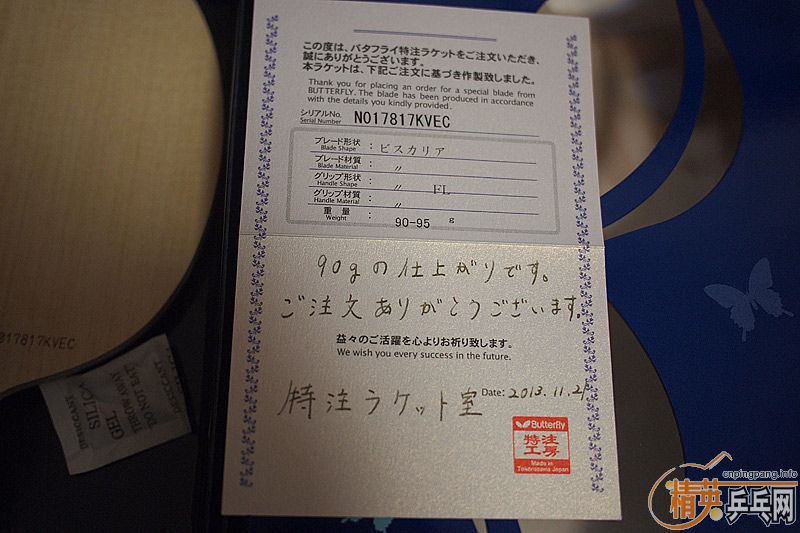 この度は、バタフライ特注ラケットをご注文いただき、
誠にありがとうございます。
本ラケットは、下記ご注文に基づき作製致しました。
Thank you for placing an order for a special blade from
BUTTERFLY. The blade has been produced in accordance
with the details you kindly provided.
シリアルNo.
Serial Number
N017817KVEC
ブレード形状 : ビスカリア
Blade Shape
ブレード材質 : 〃
Blade Material
グリップ形状 : 〃 FL
Handle Shape
グリップ材質 : 〃
Handle Material
重量 : 90-95 g
Weight
90gの仕上がりです。
ご注文ありがとうございます。
益々のご活躍を心よりお祈り致します。
We wish you every success in the future.
特注ラケット室
Date: 2013.11.21
Butterfly
特注
工房
Made in
Tokorozawa Japan
017817KVEC
DESICCANT
SILICA
GEL
DO NOT EAT
THROW AWAY
DESICCANT
cnpingpang.info
精英乒乓网